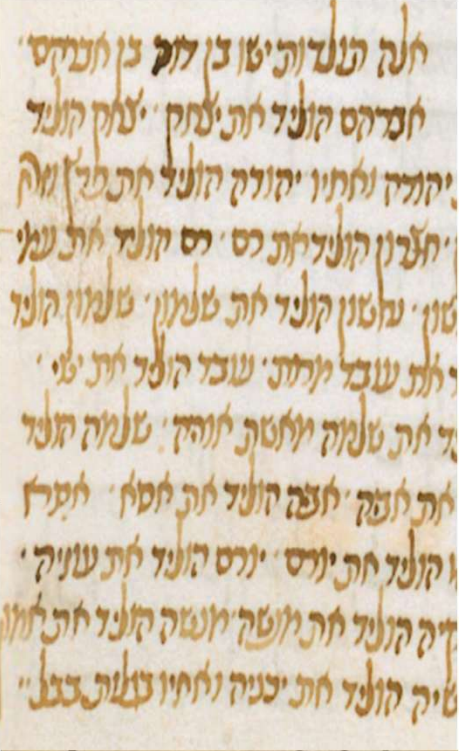 אלה תולדות ישו בן דוד בן אברהם ·
אברהם הוליד את יצחק · יצחק הוליד
יהודה ואחיו יהודה הוליד את פרץ
· חצרון הוליד את רם · רם הוליד את עמי
שון · נחשון הוליד את שלמון · שלמון הוליד
את עובד מרות · עובד הוליד את ישי ·
ד את שלמה מאשת אוריה · שלמה הוליד
את אביה · אביה הוליד את אסא · אסא
הוליד את יורם · יורם הוליד את עוזיה ·
קיה הוליד את מנשה · מנשה הוליד את אמון
שיה הוליד את יכניה ואחיו בגלות בבל ··